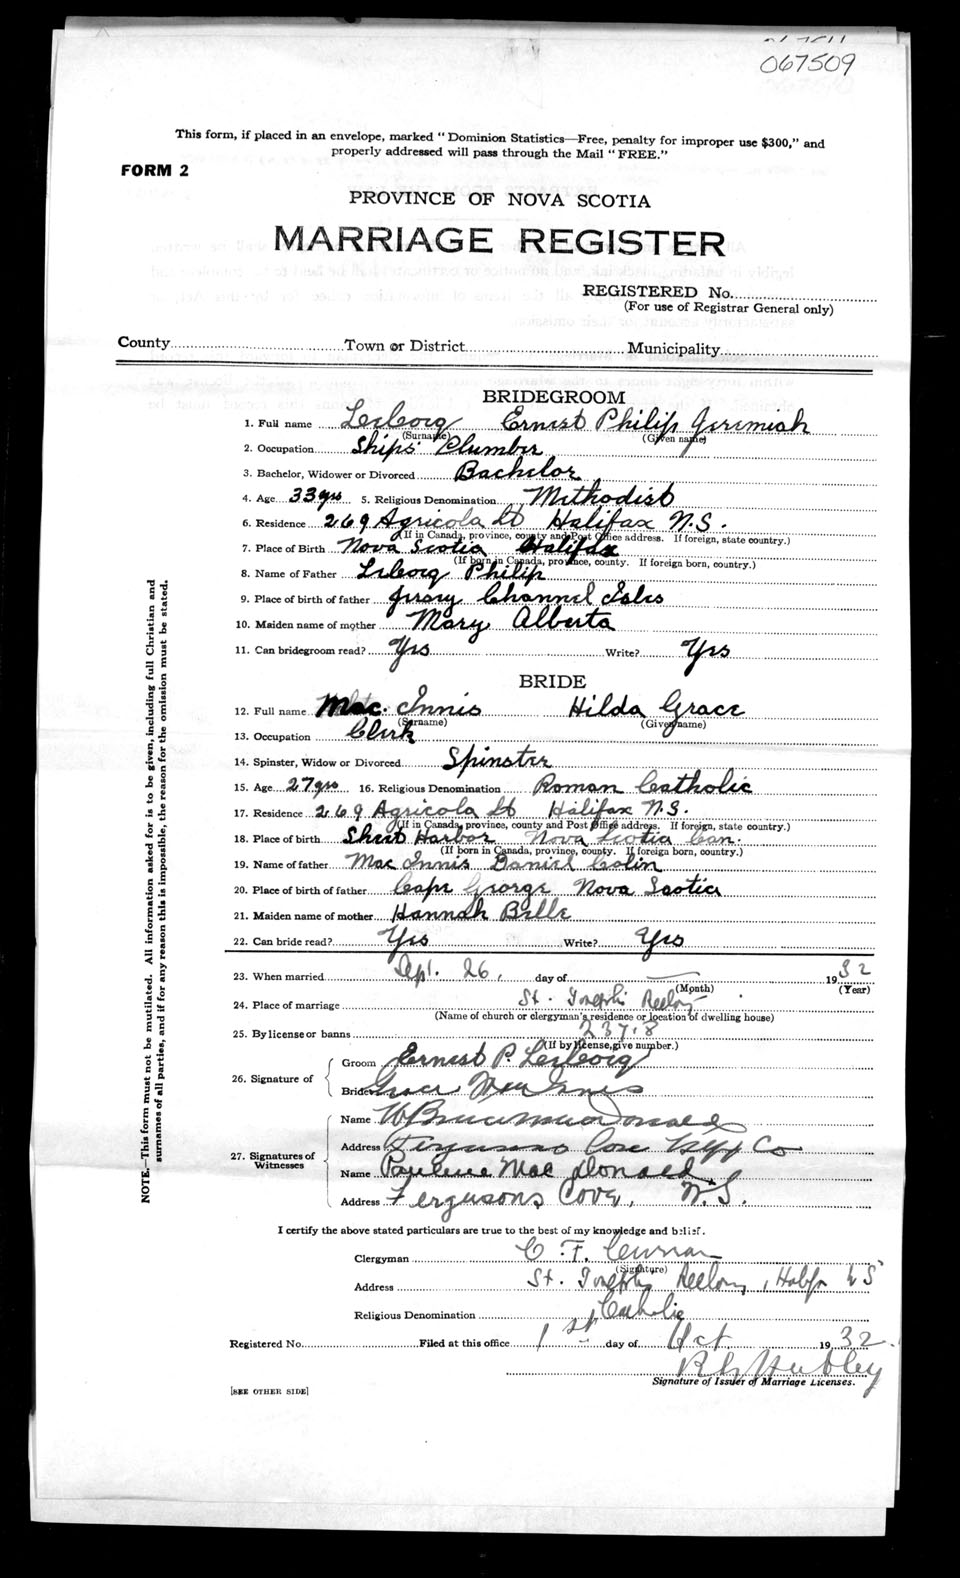 067509
This form, if placed in an envelope, marked "Dominion Statistics—Free, penalty for improper use $300," and
properly addressed will pass through the Mail "FREE."
FORM 2
PROVINCE OF NOVA SCOTIA
MARRIAGE REGISTER
REGISTERED No.
(For use of Registrar General only)
County Town or District Municipality
BRIDEGROOM
1. Full name Ernest Philip Jeremiah
(Surname) (Given name)
2. Occupation Ships' Plumber
3. Bachelor, Widower or Divorced Bachelor
4. Age 33 yrs 5. Religious Denomination Methodist
6. Residence 269 Agricola St Halifax N.S.
(If in Canada, province, county and Post Office address. If foreign, state country.)
7. Place of Birth Nova Scotia Halifax
(If born in Canada, province, county. If foreign born, country.)
8. Name of Father Philip
9. Place of birth of father Jersey Channel Isles
10. Maiden name of mother Mary Alberta
11. Can bridegroom read? Yes Write? Yes
BRIDE
12. Full name Mac Innis Hilda Grace
(Surname) (Given name)
13. Occupation Clerk
14. Spinster, Widow or Divorced Spinster
15. Age 27 yrs 16. Religious Denomination Roman Catholic
17. Residence 269 Agricola St Halifax N.S.
(If in Canada, province, county and Post Office address. If foreign, state country.)
18. Place of birth Sheet Harbor Nova Scotia Can.
(If born in Canada, province, county. If foreign born, country.)
19. Name of father Mac Innis Daniel Colin
20. Place of birth of father Cape George Nova Scotia
21. Maiden name of mother Hannah Belle
22. Can bride read? Yes Write? Yes
23. When married Sept. 26, day of 1932
(Month) (Year)
24. Place of marriage St. Joseph's Rectory
(Name of church or clergyman's residence or location of dwelling house)
25. By license or banns 23718
(If by license, give number.)
26. Signature of
Groom Ernest P.
Bride Grace MacInnis
27. Signatures of Witnesses
Name W Bruce MacDonald
Address Fergusons Cove Hfx Co
Name Paulene Mac Donald
Address Fergusons Cove, N.S.
I certify the above stated particulars are true to the best of my knowledge and belief.
Clergyman C. F. Curran
(Signature)
Address St. Joseph's Rectory, Halifx N S
Religious Denomination Catholic
Registered No. Filed at this office 1st day of Oct 1932.
Hubley
Signature of Issuer of Marriage Licenses.
[SEE OTHER SIDE]
NOTE.—This form must not be mutilated. All information asked for is to be given, including full Christian and
surnames of all parties, and if for any reason this is impossible, the reason for the omission must be stated.